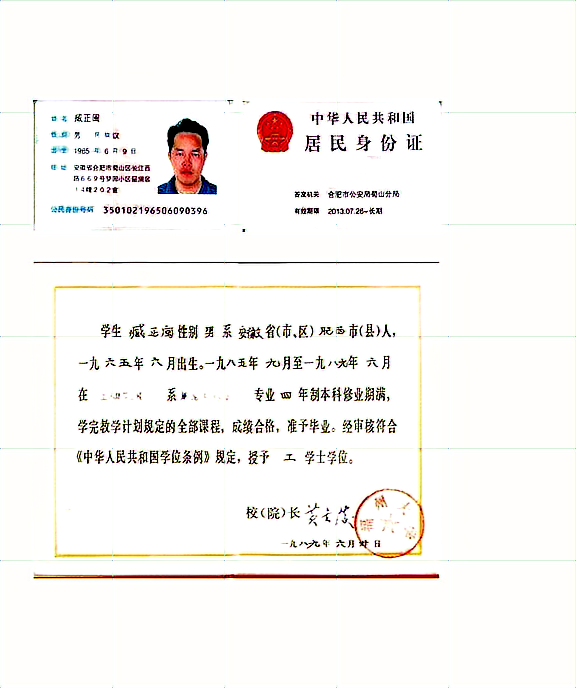 姓名 臧正闽
性别 男 民族汉
出生 1965 年 6 月 9 日
住址 安徽省合肥市蜀山区长江西
路669号梦园小区
14幢202室
公民身份号码 350102196506090396
中华人民共和国
居民身份证
签发机关 合肥市公安局蜀山分局
有效期限 2013.07.26-长期
学生 臧正闽 性别 男 系 安徽省(市、区)肥西市(县)人,
一九六五年 六月出生。一九八五年 九月至一九八九年 六月
在 系 专业 四 年制本科修业期满,
学完教学计划规定的全部课程,成绩合格,准予毕业。经审核符合
《中华人民共和国学位条例》规定,授予 工 学士学位。
校(院)长
一九八九年 六月 日